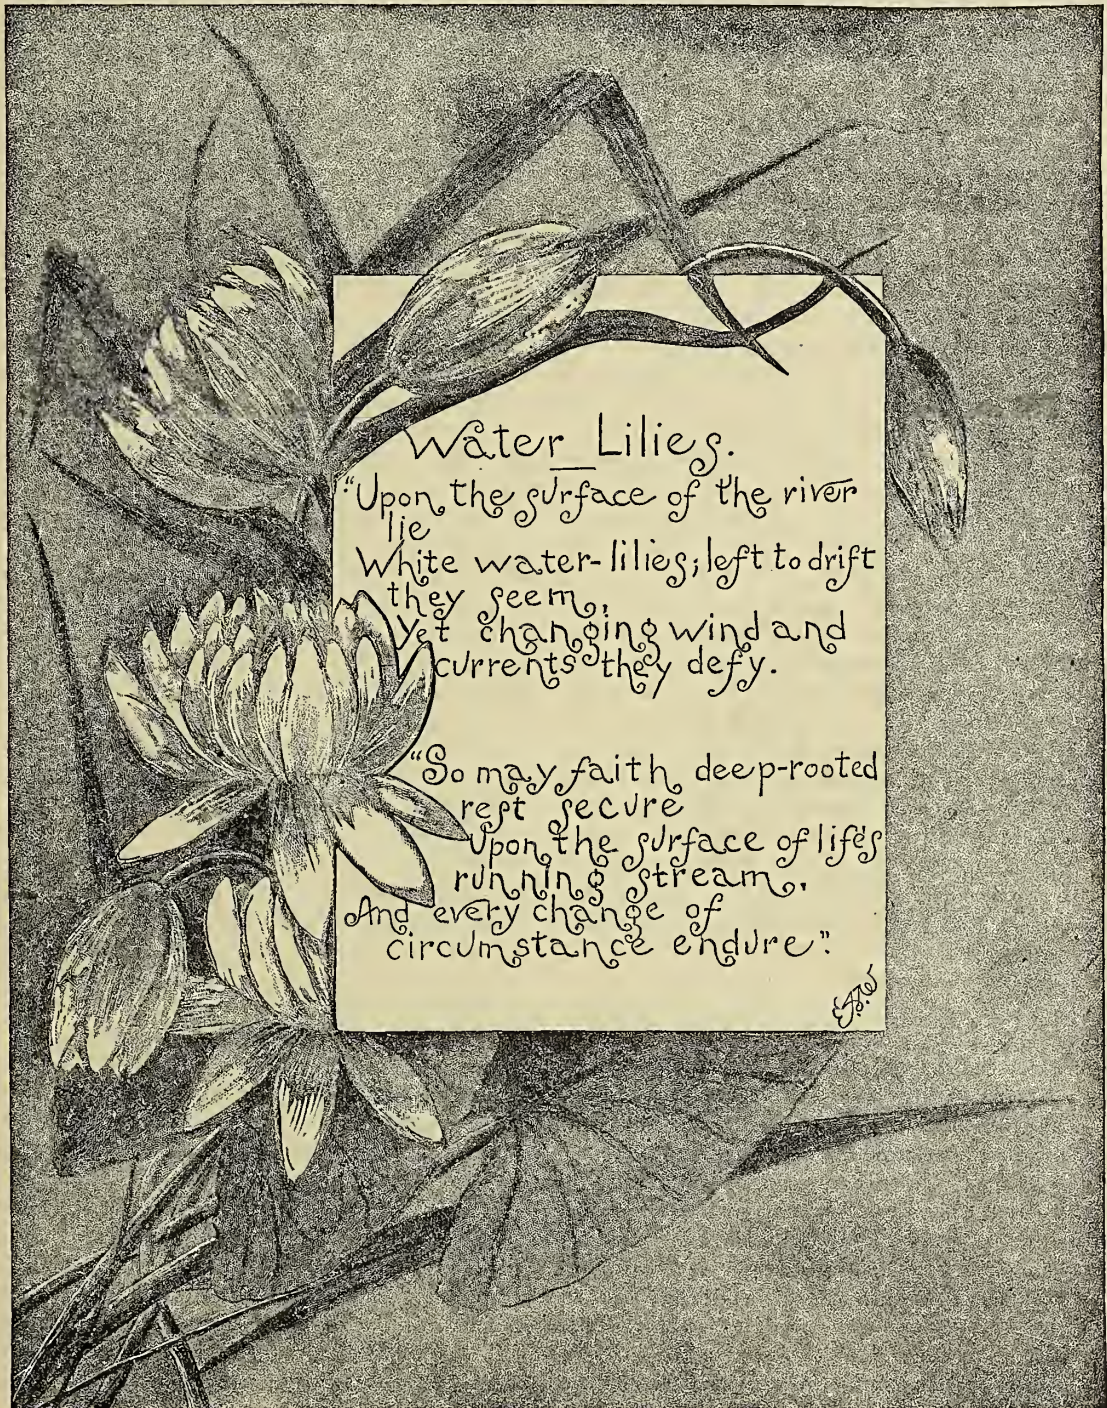 Water Lilies.
"Upon the surface of the river
lie
White water-lilies; left to drift
they seem,
Yet changing wind and
currents they defy.
"So may faith deep-rooted
rest secure
Upon the surface of life's
running stream,
And every change of
circumstance endure".